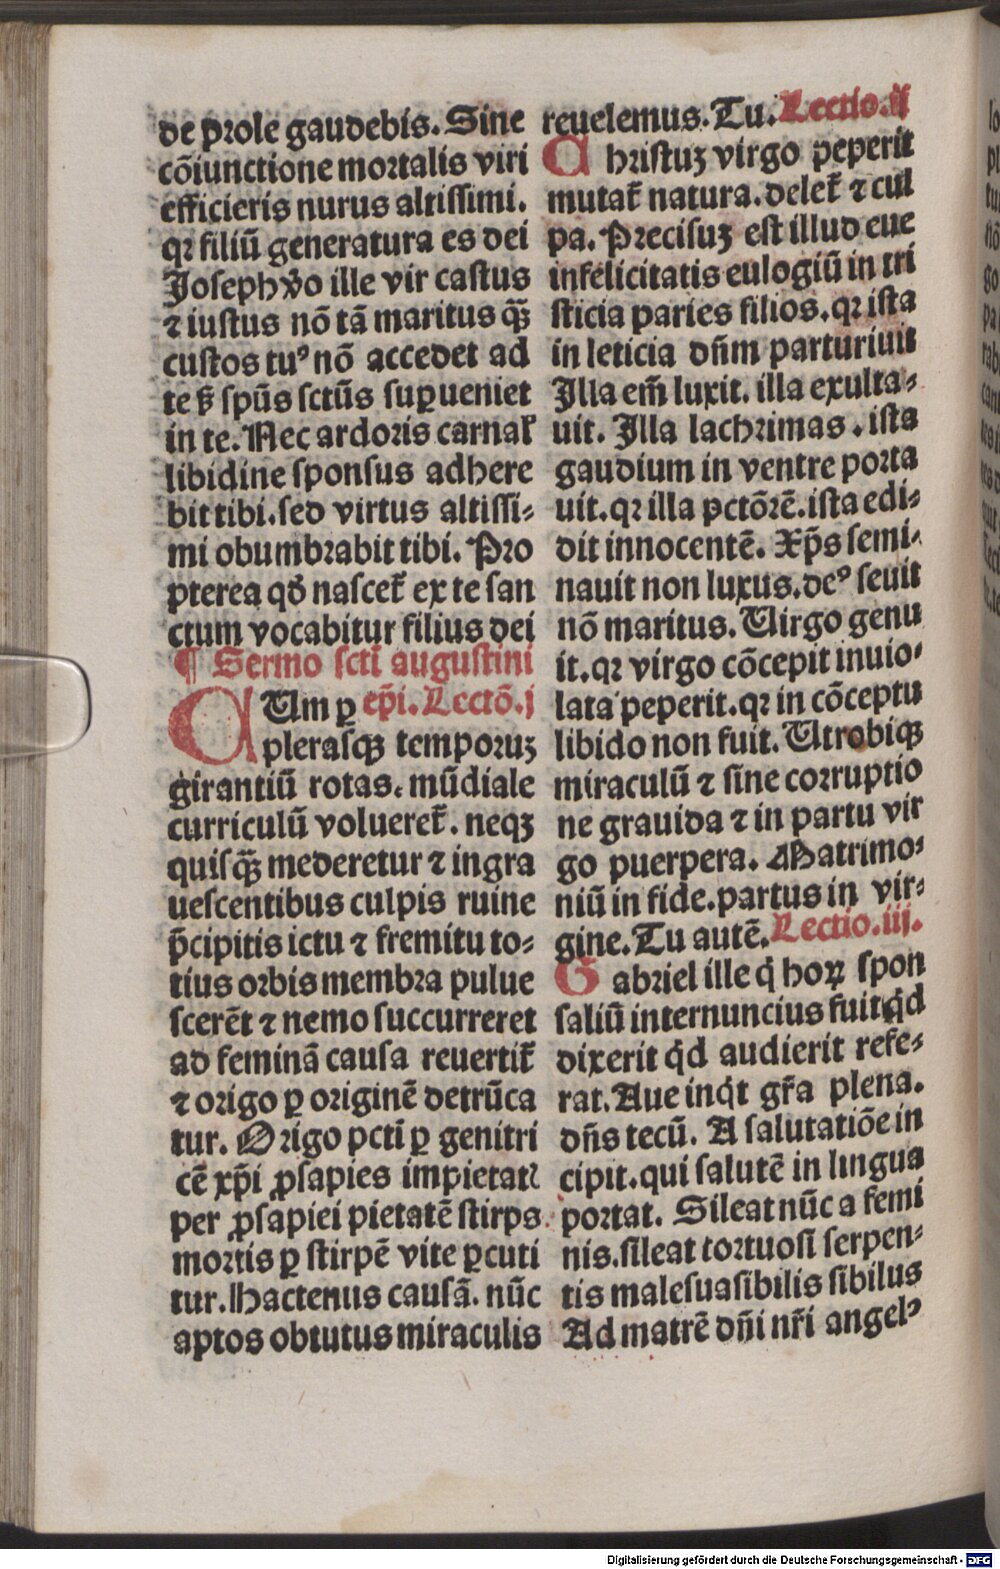 de prole gaudebis. Sine
cōiunctione mortalis viri
efficieris nurus altissimi.
qꝛ filiū generatura es dei
Joseph v̄o ille vir castus
⁊ iustus nō tā maritus qꝫ̄
custos tuꝰ nō accedet ad
te ß spūs sctūs supueniet
in te. Nec ardoris carnaƚ
libidine sponsus adhere
bit tibi. sed virtus altissi⸗
mi obumbrabit tibi. Pro
pterea qđ nascet̄ ex te san
ctum vocabitur filius dei
¶ Sermo scti augustini
CUm ꝑ ep̄i. Lectō. j
plerasqꝫ temporuꝫ
girantiū rotas. mūdiale
curriculū volueret̄. neqꝫ
quisqꝫ̄ mederetur ⁊ ingra
uescentibus culpis ruine
p̄cipitis ictu ⁊ fremitu to⸗
tius orbis membra pulue
scerēt ⁊ nemo succurreret
ad feminā causa reuertit̄
⁊ origo ꝑ originē detrūca
tur. Origo pcti ꝑ genitri
cē xp̄i ꝓsapies impietatꝭ
per ꝓsapiei pietatē stirps
mortis ꝑ stirpē vite ꝑcuti
tur. Hactenus causā. nūc
aptos obtutus miraculis
reuelemus. Tu. Lectio. ij
Christuꝫ virgo peperit
mutat̄ natura. delet̄ ⁊ cul
pa. Precisuꝫ est illud eue
infelicitatis eulogiū in tri
sticia paries filios. qꝛ ista
in leticia dn̄m parturiuit
Illa em̄ luxit. illa exulta⸗
uit. Illa lachrimas. ista
gaudium in ventre porta
uit. qꝛ illa pctōrē. ista edi⸗
dit innocentē. Xp̄s semi⸗
nauit non luxus. deꝰ seuit
nō maritus. Uirgo genu
it. qꝛ virgo cōcepit inuio⸗
lata peperit. qꝛ in cōceptu
libido non fuit. Utrobiqꝫ
miraculū ⁊ sine corruptio
ne grauida ⁊ in partu vir
go puerpera. Matrimo⸗
niū in fide. partus in vir⸗
gine. Tu autē. Lectio. iij.
Gabriel ille q̇ hoꝝ spon
saliū internuncius fuit q̇d
dixerit q̇d audierit refe⸗
rat. Aue inq̇t gr̄a plena.
dn̄s tecū. A salutatiōe in
cipit. qui salutē in lingua
portat. Sileat nūc a femi
nis. sileat tortuosi serpen⸗
tis malesuasibilis sibilus
Ad matrē dn̄i nr̄i angelꝰ
Digitalisierung gefördert durch die Deutsche Forschungsgemeinschaft - DFG